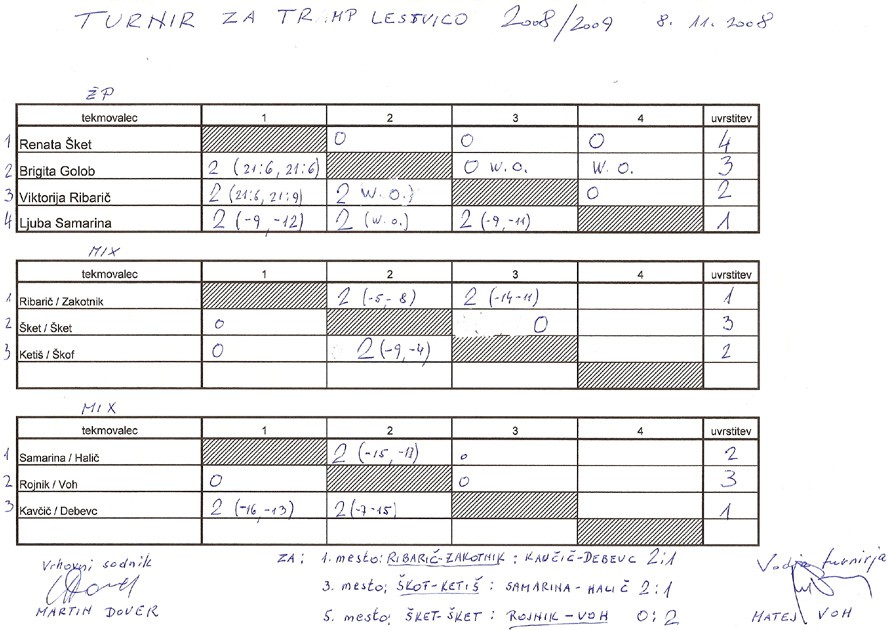 TURNIR ZA TRIMP LESTVICO 2008/2009 8. 11. 2008
ŽP
tekmovalec 1 2 3 4 uvrstitev
1 Renata Šket 0 0 0 4
2 Brigita Golob 2 (21:6, 21:6) 0 W.O. W.O. 3
3 Viktorija Ribarič 2 (21:6, 21:9) 2 W.O.) 0 2
4 Ljuba Samarina 2 (-9, -12) 2 (w.o.) 2 (-9,-11) 1
MIX
tekmovalec 1 2 3 4 uvrstitev
1 Ribarič / Zakotnik 2 (-5,-8) 2 (-14-11) 1
2 Šket / Šket 0 0 3
3 Ketiš / Škof 0 2 (-9,-4) 2
MIX
tekmovalec 1 2 3 4 uvrstitev
1 Samarina / Halič 2 (-15, -17) 0 2
2 Rojnik / Voh 0 0 3
3 Kavčič / Debevc 2 (-16,-13) 2 (-7-15) 1
Vrhovni sodnik
MARTIN DOVER
ZA: 1. mesto: RIBARIČ-ZAKOTNIK : KAUČIČ-DEBEVC 2:1
3. mesto; ŠKOT-KETIŠ : SAMARINA-HALIČ 2:1
5. mesto; ŠKET-ŠKET : ROJNIK-VOH 0:2
Vodja turnirja
MATEJ VOH